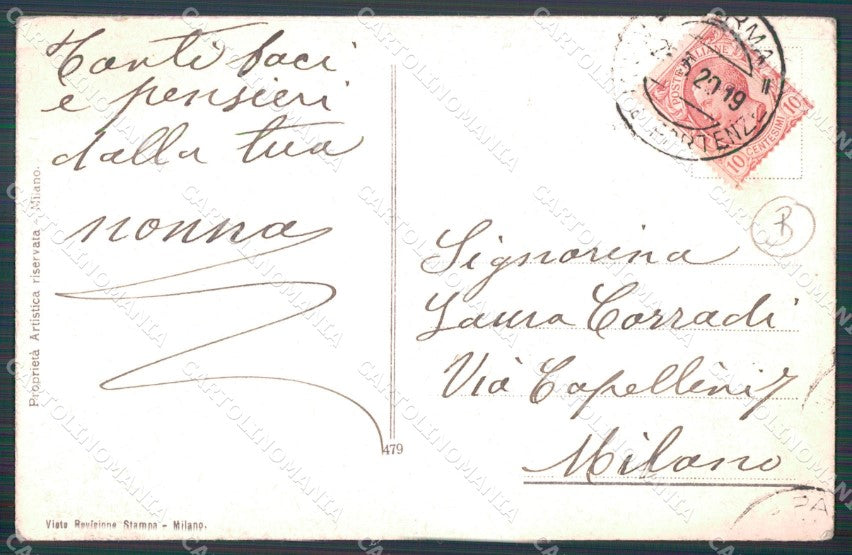 Tanti baci
e pensieri
dalla tua
nonna
Proprietà Artistica riservata - Milano.
Visto Revisione Stampa - Milano.
479
POSTE ITALIANE
10 CENTESIMI 10
PARTENZE
20 19
B
Signorina
Laura Corradi
Via Capellini 7
Milano
CARTOLINOMANIA